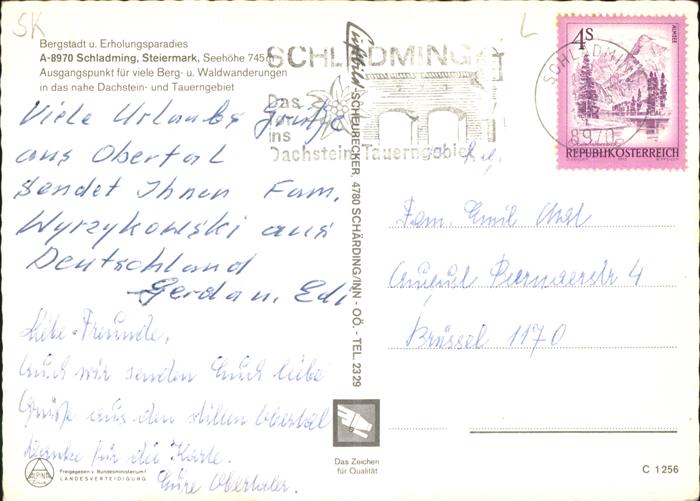 SK
L
Bergstadt u. Erholungsparadies
A-8970 Schladming, Steiermark, Seehöhe 745
Ausgangspunkt für viele Berg- u. Waldwanderungen
in das nahe Dachstein- und Tauerngebiet
Viele Urlaubs Grüße
aus Obertal
sendet Ihnen Fam.
Wyrzykowski aus
Deutschland
Gerda u. Edi
Liebe Freunde,
Auch wir senden Euch liebe
Grüße aus den stillen Obertal
Danke für die Karte.
Eure Obertaler.
ALPINA
Freigegeben v. Bundesministerium f.
LANDESVERTEIDIGUNG
Luftbild SCHEURECKER, 4780 SCHÄRDING/INN - OÖ. - TEL. 23 29
Das Zeichen
für Qualität
SCHLADMING
Das
ins
Dachstein-Tauerngebiet
SCHLADMING
8970
4 S
ALMSEE
REPUBLIK ÖSTERREICH
Fam. Emil
August 4
Brüssel 1170
C 1256